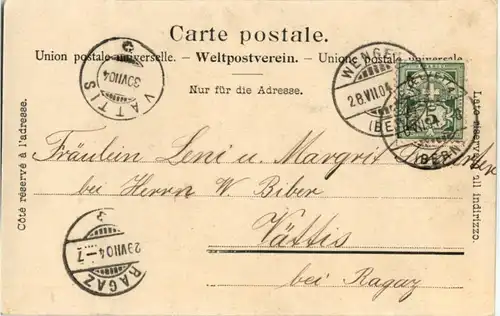 Carte postale.
Union postale universelle. – Weltpostverein. – Unione postale universale
Nur für die Adresse.
Côté réservé à l'adresse.
Lato riservato all indirizzo.
VÄTTIS
30 VII 04
WENGEN
28.VII.04
(BERN)
(BERN)
5
Fräulein Leni u. Margrit
bei Herrn W. Biber
Vättis
bei Ragaz
RAGAZ
29 VII 04 – 7